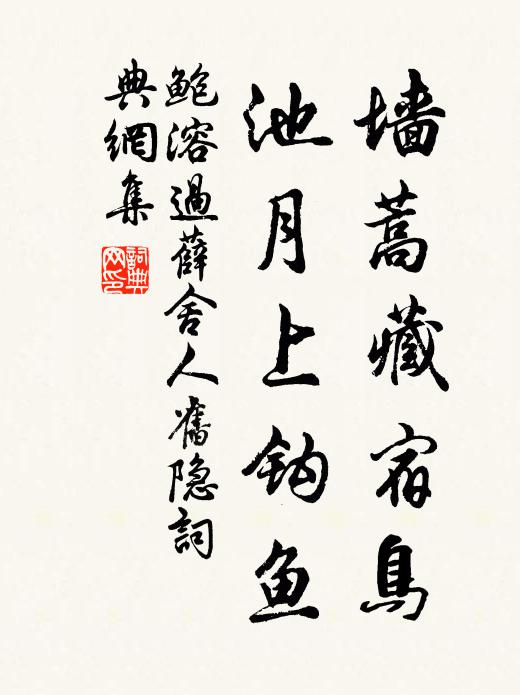 墙蒿藏宿鳥
池月上钩鱼
鲍溶過薛舍人舊隐詞
典網集
詞典网印